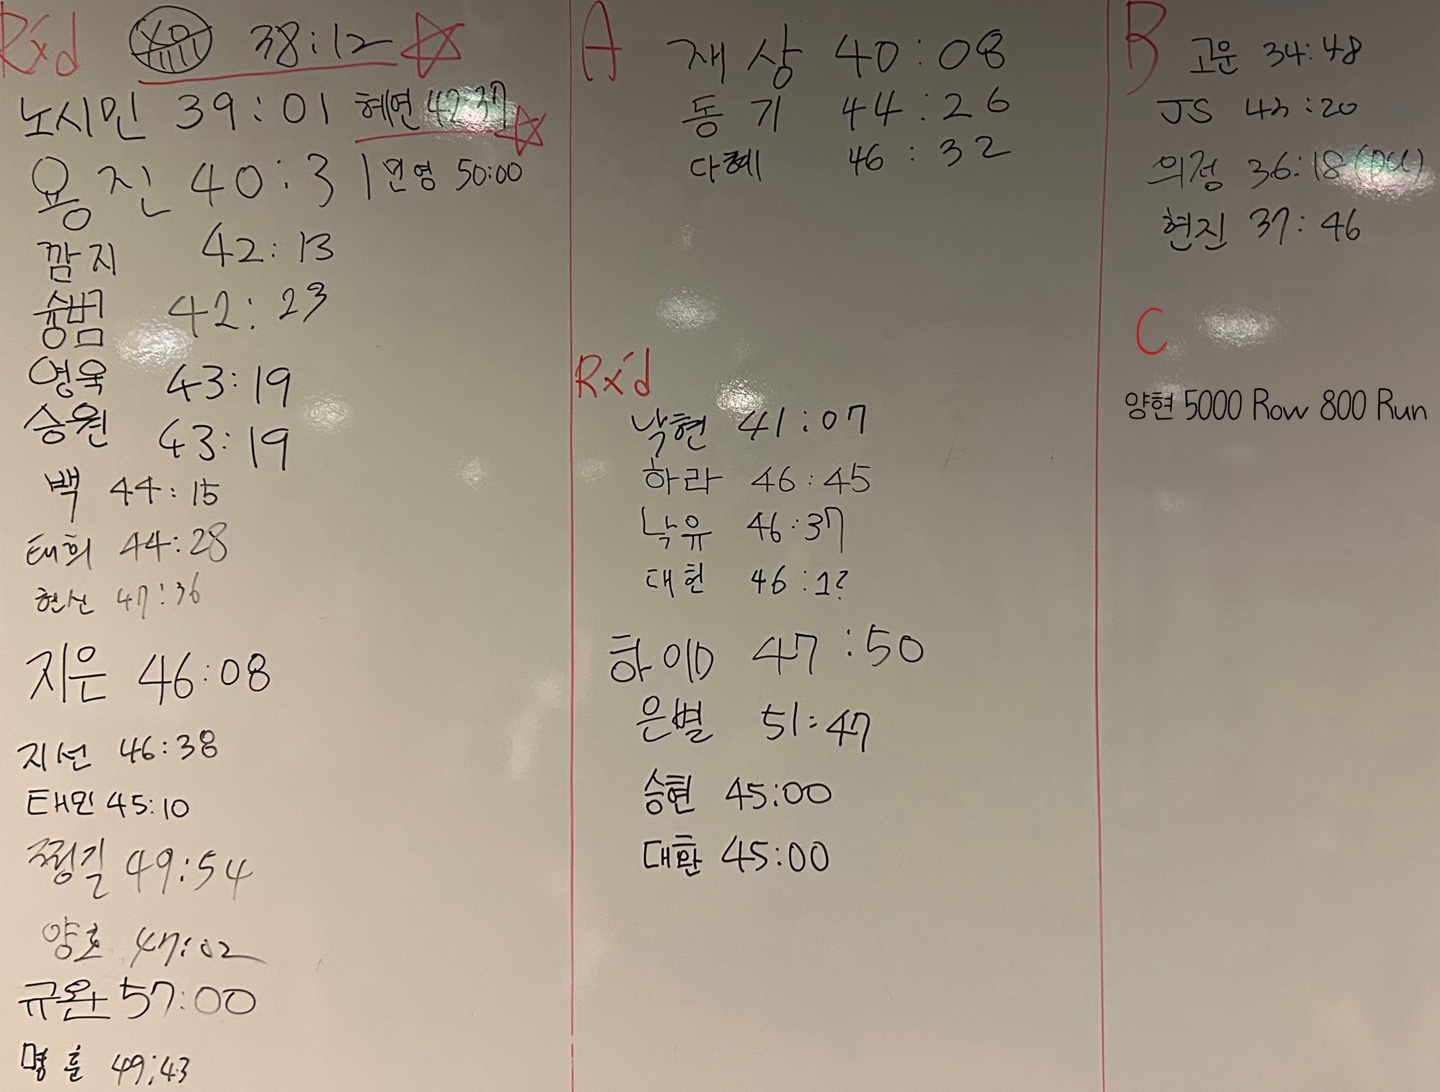 Rx'd 38:12
노시민 39:01 혜연 42:37
용진 40:31 민영 50:00
깜지 42:13
승범 42:23
영욱 43:19
승원 43:19
백 44:15
태희 44:28
현신 47:36
지은 46:08
지선 46:38
태민 45:10
쩡길 49:54
양호 47:02
규완 57:00
명훈 49:43
A 재상 40:08
동기 44:26
다혜 46:32
Rx'd
낙현 41:07
하라 46:45
낙유 46:37
대헌 46:12
하이D 47:50
은별 51:47
승현 45:00
대환 45:00
B 고운 34:48
JS 43:20
의정 36:18 (PU)
현진 37:46
C
양현 5000 Row 800 Run